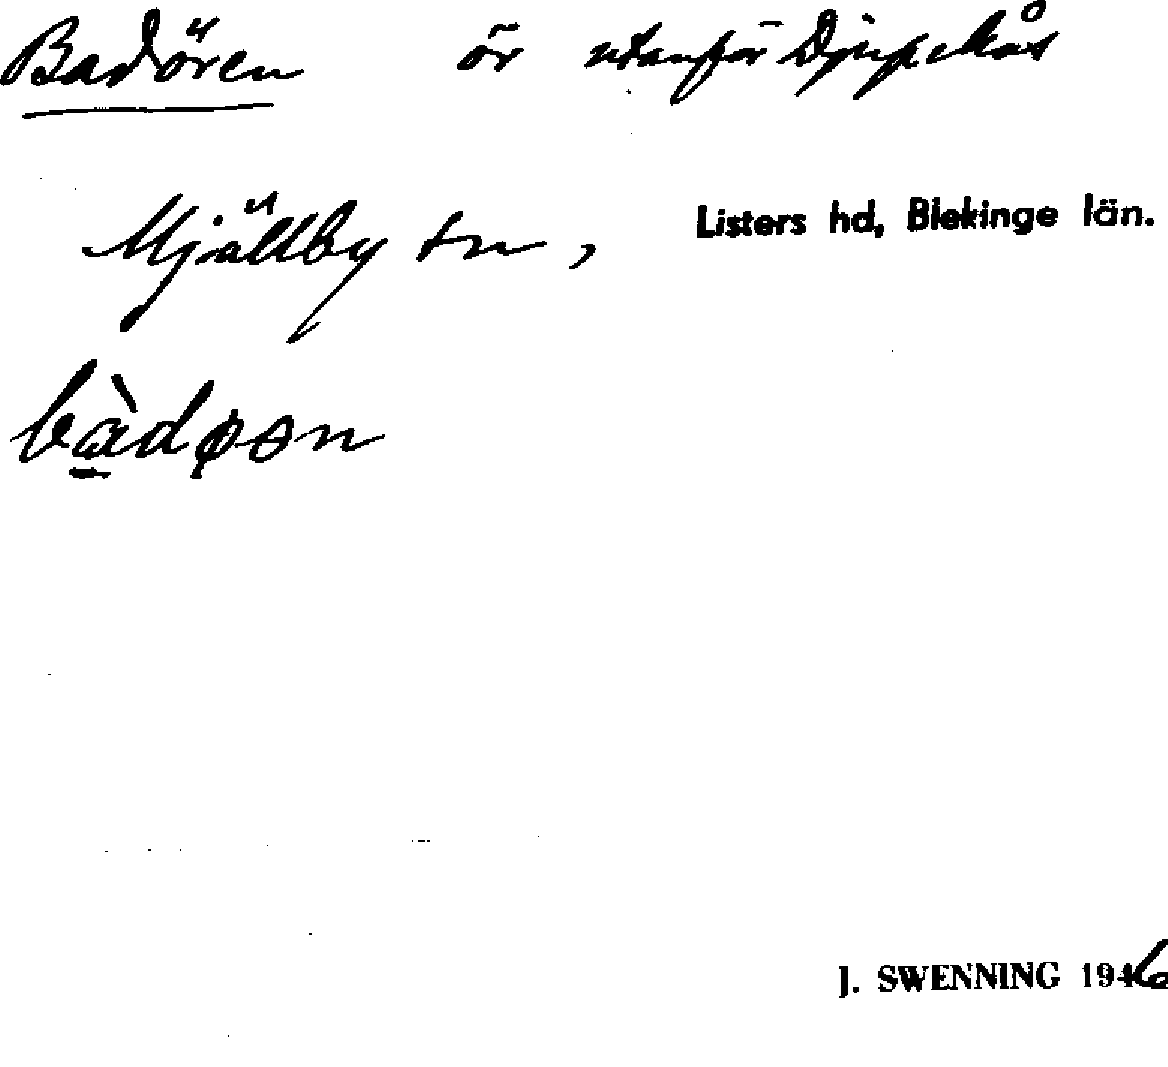 Badören ör utanför Djupekås
Mjällby sn, Listers hd, Blekinge län.
bàdøən
J. SWENNING 1946